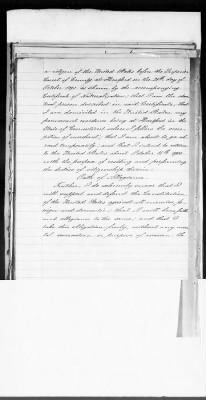 a citizen of the United States before the Superior
Court of County at Hartford on the 20th day of
October 1891 as shown by the accompanying
Certificate of Naturalization; that I am the iden-
tical person described in said Certificate, that
I am domiciled in the United States, my
permanent residence being at Hartford in the
State of Connecticut where I follow the occu-
pation of merchant; that I am about to go ab-
road temporarily, and that I intend to return
to the United States about October 1st 1900
with the purpose of residing and performing
the duties of citizenship therein.
Oath of Allegiance.
Further, I do solemnly swear that I
will support and defend the Constitution
of the United States against all enemies, fo-
reign and domestic; that I will bear faith
and allegiance to the same; and that I
take this obligation freely, without any men-
tal reservation or purpose of evasion. So